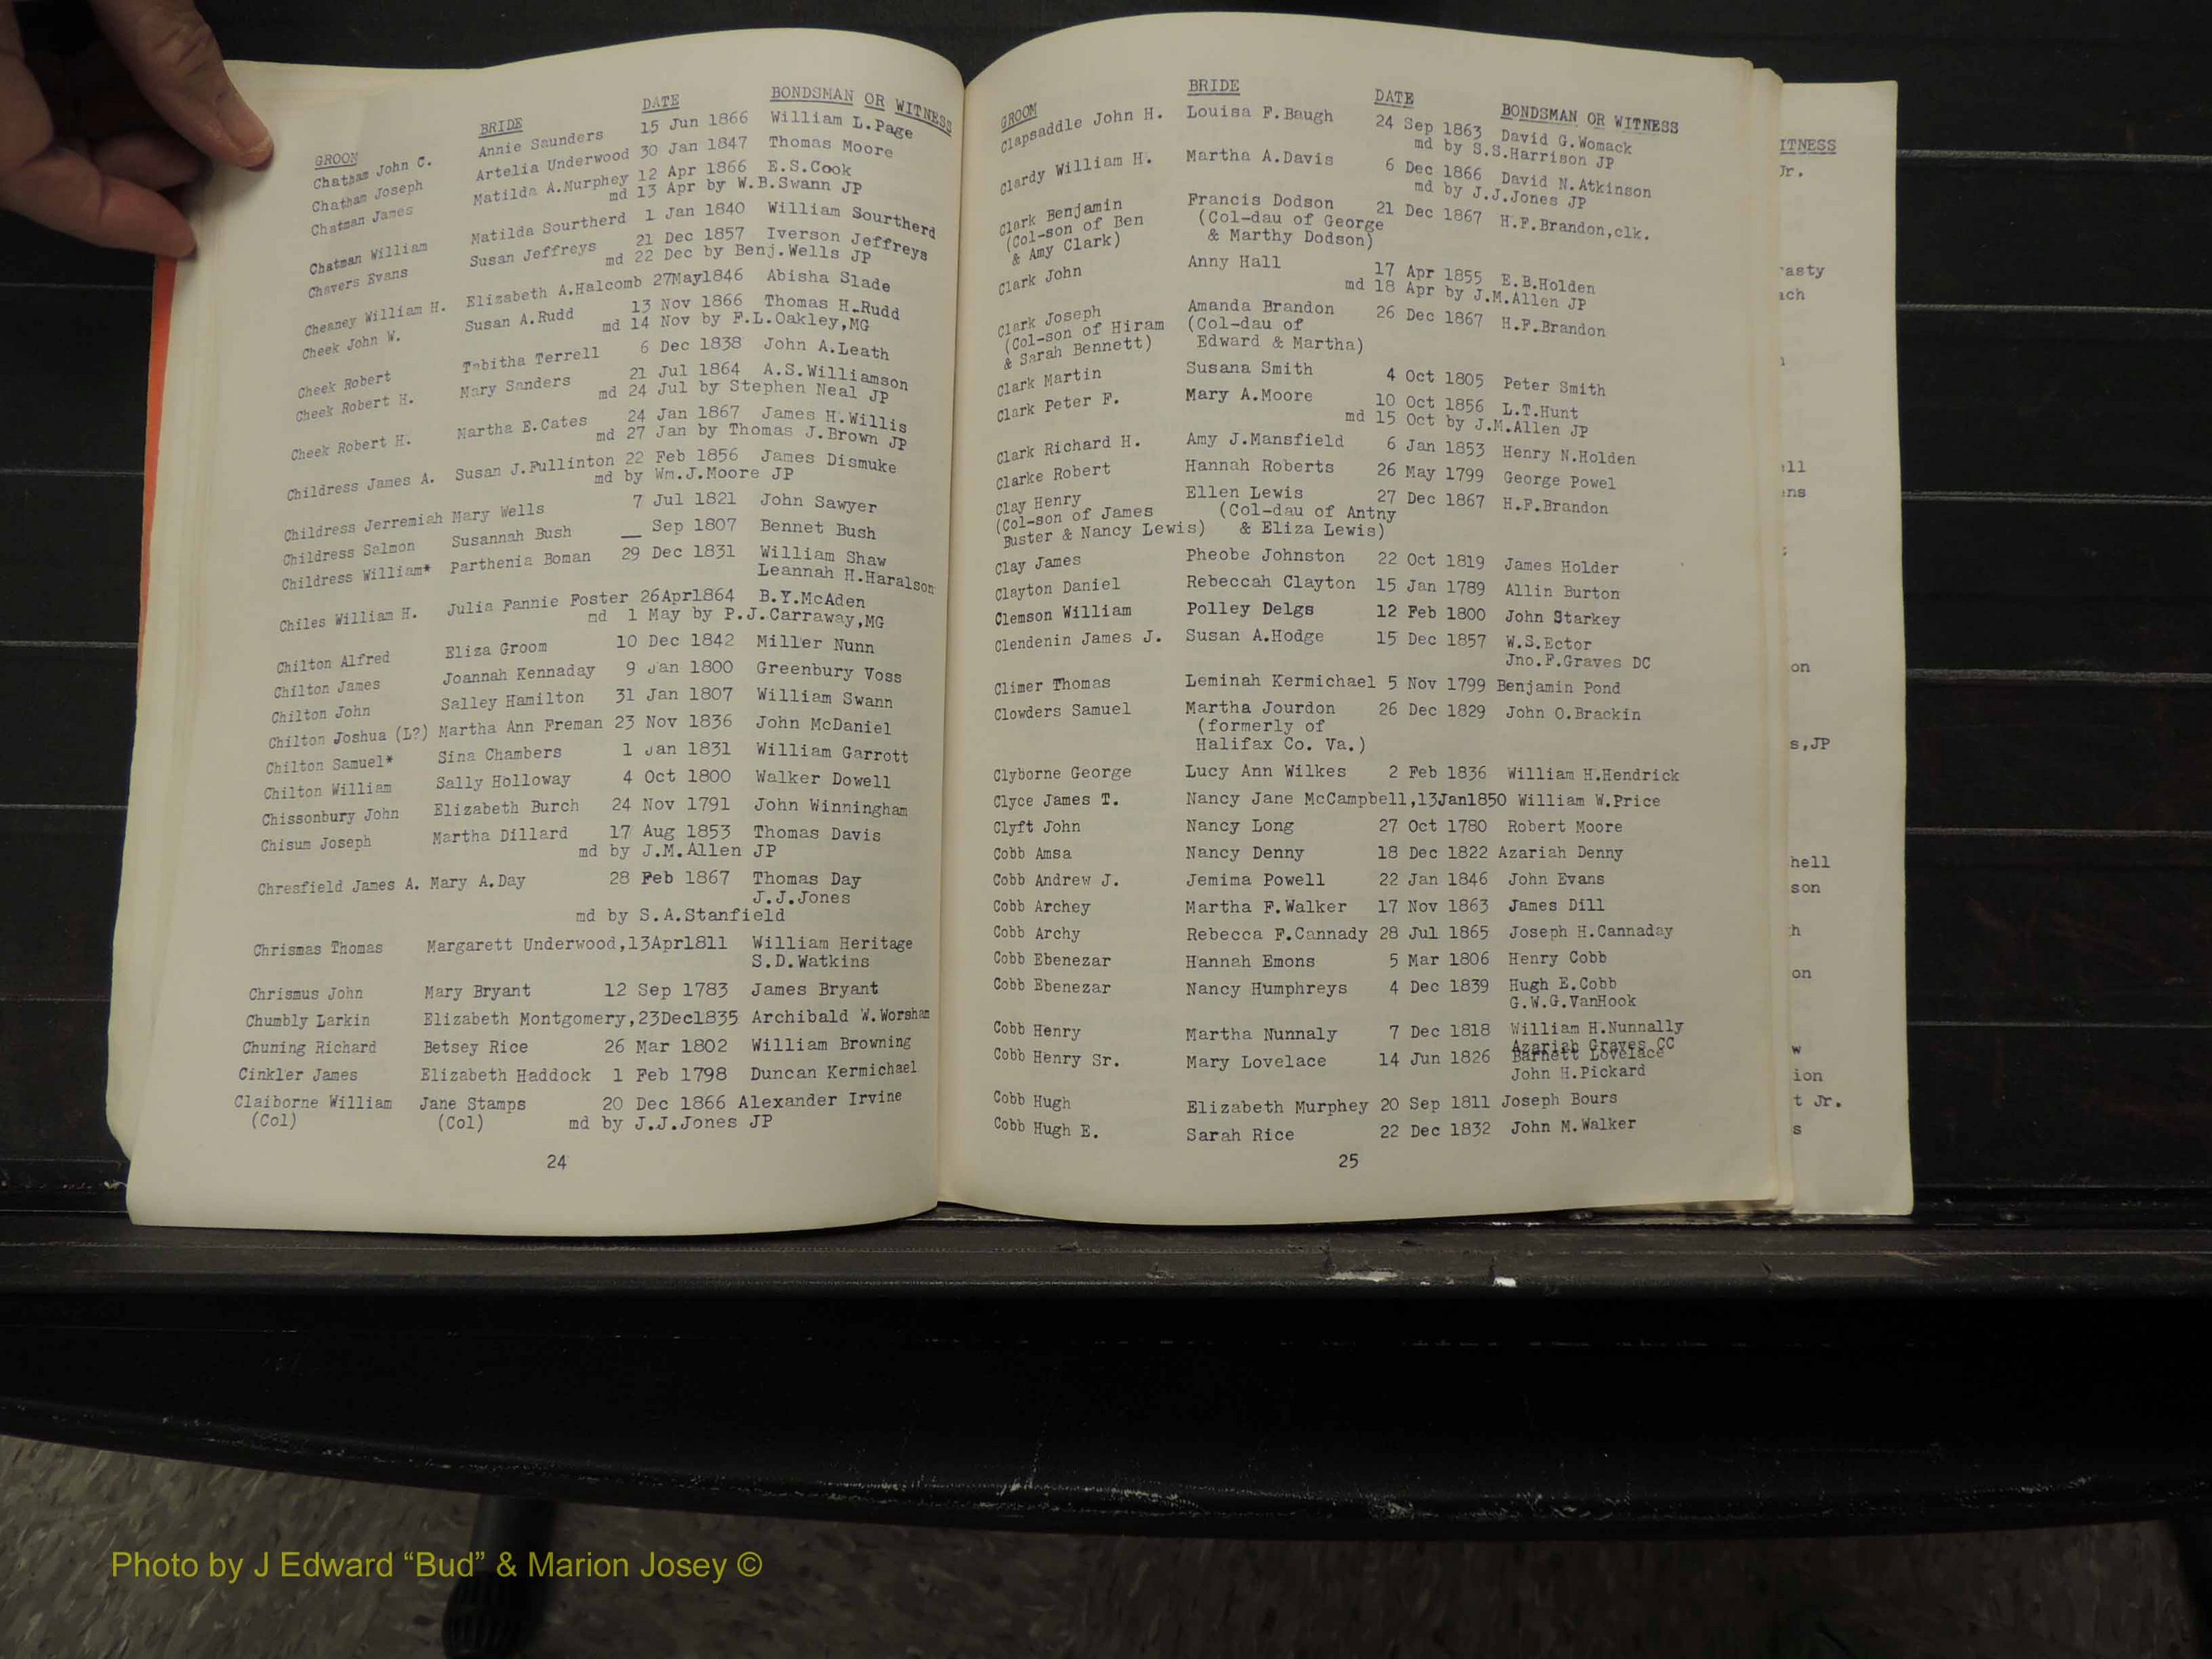 GROOM BRIDE DATE BONDSMAN OR WITNESS
Chatham John C. Annie Saunders 15 Jun 1866 William L.Page
Chatham Joseph Artelia Underwood 30 Jan 1847 Thomas Moore
Chatman James Matilda A.Murphey 12 Apr 1866 E.S.Cook
md 13 Apr by W.B.Swann JP
Chatman William Matilda Sourtherd 1 Jan 1840 William Sourtherd
Chavers Evans Susan Jeffreys 21 Dec 1857 Iverson Jeffreys
md 22 Dec by Benj.Wells JP
Cheaney William H. Elizabeth A.Halcomb 27May1846 Abisha Slade
Cheek John W. Susan A.Rudd 13 Nov 1866 Thomas H.Rudd
md 14 Nov by F.L.Oakley,MG
Cheek Robert Tabitha Terrell 6 Dec 1838 John A.Leath
Cheek Robert H. Mary Sanders 21 Jul 1864 A.S.Williamson
md 24 Jul by Stephen Neal JP
Cheek Robert H. Martha E.Cates 24 Jan 1867 James H.Willis
md 27 Jan by Thomas J.Brown JP
Childress James A. Susan J.Fullinton 22 Feb 1856 James Dismuke
md by Wm.J.Moore JP
Childress Jerremiah Mary Wells 7 Jul 1821 John Sawyer
Childress Salmon Susannah Bush __ Sep 1807 Bennet Bush
Childress William* Parthenia Boman 29 Dec 1831 William Shaw
Leannah H.Haralson
Chiles William H. Julia Fannie Foster 26Apr1864 B.Y.McAden
md 1 May by P.J.Carraway,MG
Chilton Alfred Eliza Groom 10 Dec 1842 Miller Nunn
Chilton James Joannah Kennaday 9 Jan 1800 Greenbury Voss
Chilton John Salley Hamilton 31 Jan 1807 William Swann
Chilton Joshua (L?) Martha Ann Freman 23 Nov 1836 John McDaniel
Chilton Samuel* Sina Chambers 1 Jan 1831 William Garrott
Chilton William Sally Holloway 4 Oct 1800 Walker Dowell
Chissonbury John Elizabeth Burch 24 Nov 1791 John Winningham
Chisum Joseph Martha Dillard 17 Aug 1853 Thomas Davis
md by J.M.Allen JP
Chresfield James A. Mary A.Day 28 Feb 1867 Thomas Day
J.J.Jones
md by S.A.Stanfield
Chrismas Thomas Margarett Underwood,13Apr1811 William Heritage
S.D.Watkins
Chrismus John Mary Bryant 12 Sep 1783 James Bryant
Chumbly Larkin Elizabeth Montgomery,23Dec1835 Archibald W.Worsham
Chuning Richard Betsey Rice 26 Mar 1802 William Browning
Cinkler James Elizabeth Haddock 1 Feb 1798 Duncan Kermichael
Claiborne William Jane Stamps 20 Dec 1866 Alexander Irvine
(Col) (Col) md by J.J.Jones JP
24
GROOM BRIDE DATE BONDSMAN OR WITNESS
Clapsaddle John H. Louisa F.Baugh 24 Sep 1863 David G.Womack
md by S.S.Harrison JP
Clardy William H. Martha A.Davis 6 Dec 1866 David N.Atkinson
md by J.J.Jones JP
Clark Benjamin Francis Dodson 21 Dec 1867 H.F.Brandon,clk.
(Col-son of Ben (Col-dau of George
& Amy Clark) & Marthy Dodson)
Clark John Anny Hall 17 Apr 1855 E.B.Holden
md 18 Apr by J.M.Allen JP
Clark Joseph Amanda Brandon 26 Dec 1867 H.F.Brandon
(Col-son of Hiram (Col-dau of
& Sarah Bennett) Edward & Martha)
Clark Martin Susana Smith 4 Oct 1805 Peter Smith
Clark Peter F. Mary A.Moore 10 Oct 1856 L.T.Hunt
md 15 Oct by J.M.Allen JP
Clark Richard H. Amy J.Mansfield 6 Jan 1853 Henry N.Holden
Clarke Robert Hannah Roberts 26 May 1799 George Powel
Clay Henry Ellen Lewis 27 Dec 1867 H.F.Brandon
(Col-son of James (Col-dau of Antny
Buster & Nancy Lewis) & Eliza Lewis)
Clay James Pheobe Johnston 22 Oct 1819 James Holder
Clayton Daniel Rebeccah Clayton 15 Jan 1789 Allin Burton
Clemson William Polley Delgs 12 Feb 1800 John Starkey
Clendenin James J. Susan A.Hodge 15 Dec 1857 W.S.Ector
Jno.F.Graves DC
Climer Thomas Leminah Kermichael 5 Nov 1799 Benjamin Pond
Clowders Samuel Martha Jourdon 26 Dec 1829 John O.Brackin
(formerly of
Halifax Co. Va.)
Clyborne George Lucy Ann Wilkes 2 Feb 1836 William H.Hendrick
Clyce James T. Nancy Jane McCampbell,13Jan1850 William W.Price
Clyft John Nancy Long 27 Oct 1780 Robert Moore
Cobb Amsa Nancy Denny 18 Dec 1822 Azariah Denny
Cobb Andrew J. Jemima Powell 22 Jan 1846 John Evans
Cobb Archey Martha F.Walker 17 Nov 1863 James Dill
Cobb Archy Rebecca F.Cannady 28 Jul 1865 Joseph H.Cannaday
Cobb Ebenezar Hannah Emons 5 Mar 1806 Henry Cobb
Cobb Ebenezar Nancy Humphreys 4 Dec 1839 Hugh E.Cobb
G.W.G.VanHook
Cobb Henry Martha Nunnaly 7 Dec 1818 William H.Nunnally
Azariah Graves CC
Cobb Henry Sr. Mary Lovelace 14 Jun 1826 Barnett Lovelace
John H.Pickard
Cobb Hugh Elizabeth Murphey 20 Sep 1811 Joseph Bours
Cobb Hugh E. Sarah Rice 22 Dec 1832 John M.Walker
25
ITNESS
Jr.
asty
ach
ell
ens
on
s,JP
hell
son
h
on
w
ion
t Jr.
s
Photo by J Edward “Bud” & Marion Josey ©